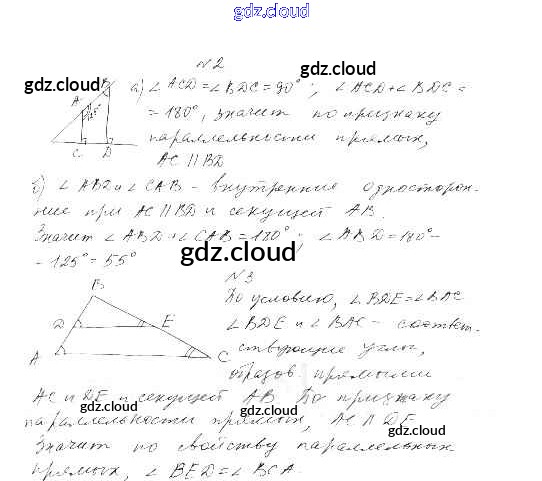 gdz.cloud
№2
а) ∠ACD = ∠BDC = 90°; ∠ACD + ∠BDC =
= 180°, значит по признаку
параллельности прямых,
AC || BD
б) ∠ABD и ∠CAB - внутренние односторон-
ние при AC || BD и секущей AB.
Значит ∠ABD + ∠CAB = 180°; ∠ABD = 180° -
- 125° = 55°
A
B
C
D
125°
gdz.cloud
№3
По условию, ∠BDE = ∠BAC
∠BDE и ∠BAC - соответ-
ствующие углы,
образов прямыми
AC и DE и секущей AB. По признаку
параллельности прямых, AC || DE
Значит по свойству параллельных
прямых, ∠BED = ∠BCA.
B
D
E
A
C
gdz.cloud
gdz.cloud
gdz.cloud
gdz.cloud
gdz.cloud
gdz.cloud